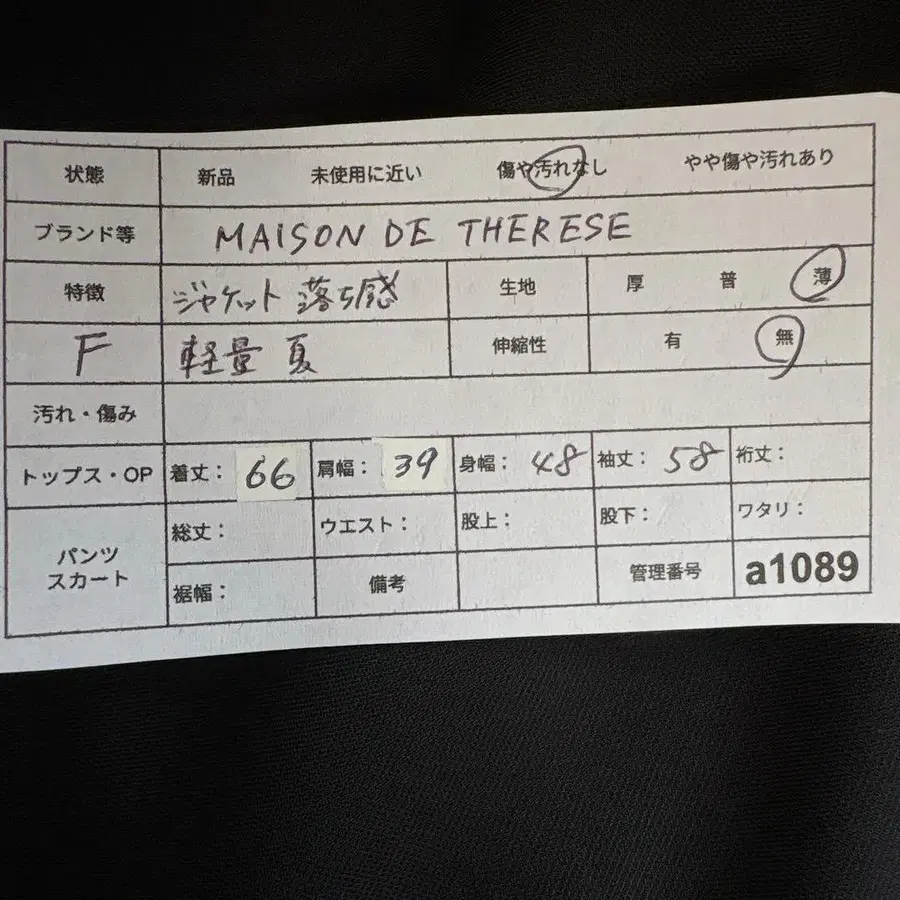 状態 新品 未使用に近い 傷や汚れなし やや傷や汚れあり
ブランド等 MAISON DE THERESE
特徴 ジャケット 落ち感 生地 厚 普 薄
F 軽量 夏 伸縮性 有 無
汚れ・傷み
トップス・OP 着丈: 66 肩幅: 39 身幅: 48 袖丈: 58 裄丈:
パンツ スカート 総丈: ウエスト: 股上: 股下: ワタリ:
裾幅: 備考 管理番号 a1089